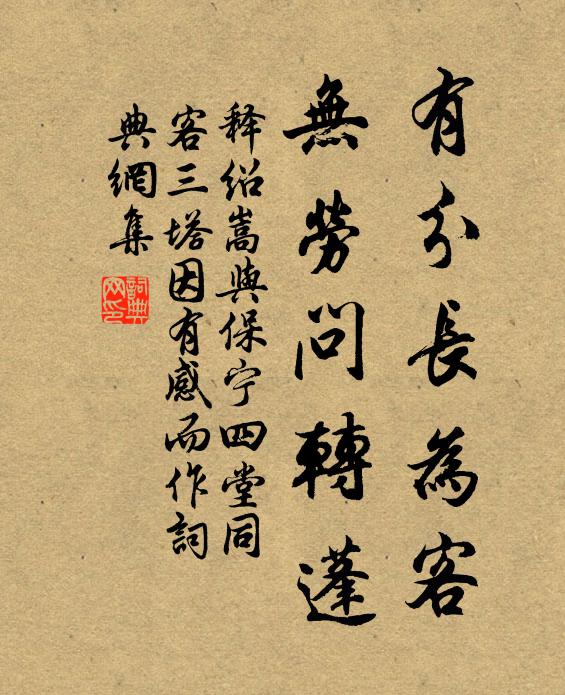 有分長為客
無勞問轉蓬
释绍嵩與保宁四堂同
客三塔因有感而作詞
典網集
詞典
网印